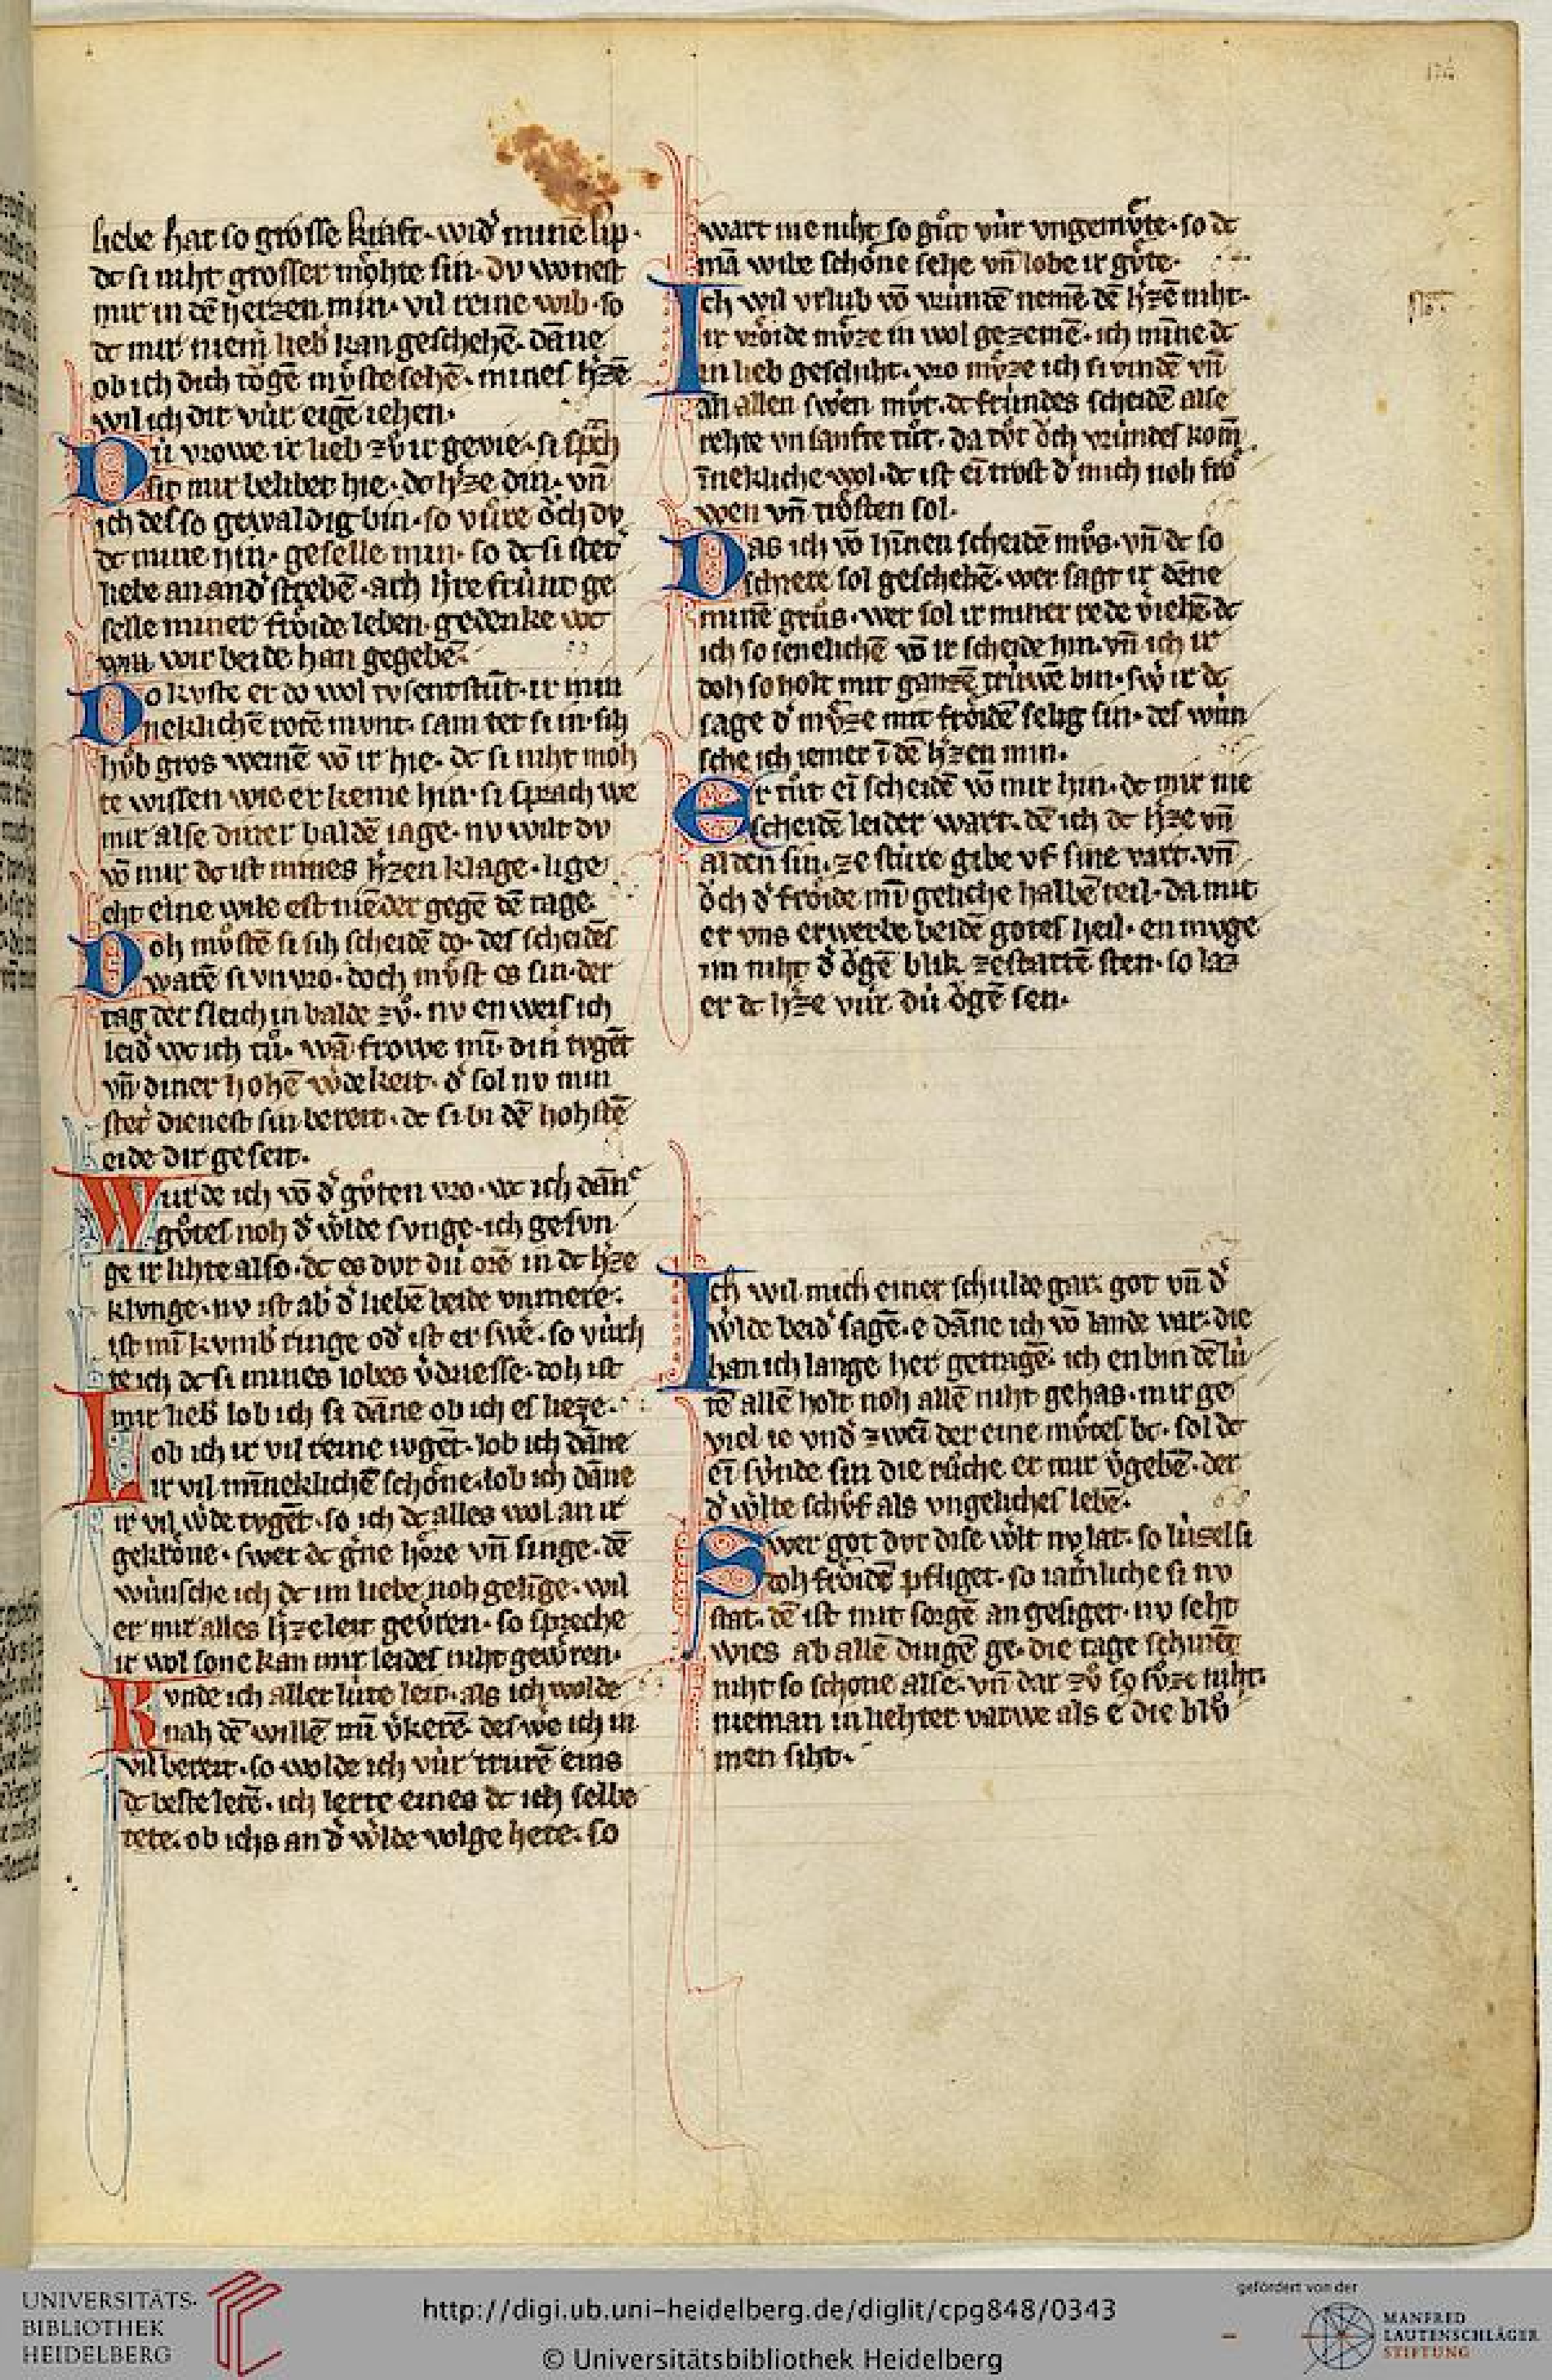 174
liebe hat so grosse kraft· wid᷒ minē lip·
dc si niht grosser mòhte sin· dv wonest
mir in dē herzen min· vil reine wib· so
dc mir niem̄ lieb᷒ kan geschehē· dāne
ob ich dich tǒgē mv̊ste sehē· mines h᷒zē
wil ich dir vúr eigē iehen·
Dú vrowe ir lieb zv̊ ir gevie· si sp̄ch
sit mir belibet hie· dc h᷒ze din· vn̄
ich des so gewaldig bin· so vu̍re ǒch dv
dc mine hin· geselle min· so dc si stet᷒
liebe an and᷒ strebē· ach h᷒re frúnt ge
selle miner frȍide leben· gedenke wc
wir beide han gegebē·
Do kvste er do wol tvsentstūt· ir min
neklichē rotē mvnt· sam tet si in· sich
hv̊b gros weinē vō ir hie· dc si niht moh
te wissen wie er keme hin· si sprach we
mir alse diner baldē iage· nv wilt dv
vō mir dc ist mines h᷒zen klage· lige
eht eine wile est niēder gegē dē tage·
Doh mv̊stē si sih scheidē do· des scheidēs
warē si vnvro· doch mv̊st es sin· der
tag der sleich in balde zv̊· nv en weis ich
leid᷒ wc ich tů· wā frowe mī· din tvgēt
vn̄ diner hohē w᷒dekeit· d᷒ sol nv min
stet᷒ dienest sin bereit· dc si bi dē hohstē
eide dir geseit·
Wurde ich vō d᷒ gv̊ten vro· wc ich dāne
gv̊tes noh d᷒ w᷒lde svnge· ich gesvn
ge ir lihte also· dc es dvr dú orē in dc h᷒ze
klvnge· nv ist ab᷒ d᷒ liebē beide vnmere·
ist mī kvmb᷒ ringe od᷒ ist er swe᷒· so vúrh
te ich dc si mines lobes v᷒driesse· doh ist
mir lieb᷒ lob ich si dāne ob ich es lieze·
Lob ich ir vil reine tvgēt· lob ich dāne
ir vil mīneklichē schȍne· lob ich dāne
ir vil w᷒de tvgēt· so ich dc alles wol an ir
gekrȍne· swer dc g᷒ne hȍre vn̄ singe· dē
wúnsche ich dc im liebe noh gelīge· wil
er mir alles h᷒zeleit gev᷒ren· so spreche
ir wol sone kan mir leides niht gew᷒ren·
Kvnde ich aller lúte leit· als ich wolde
nah dē willē mī v᷒kerē· des we᷒ ich in
vil bereit· so wolde ich vúr trurē eins
dc beste lerē· ich lerte eines dc ich selbe
tete· ob ichs an d᷒ w᷒lde volge hete· so
wart nie niht so gůt vúr vngemv̊te· so dc
mā wibe schȍne sehe vn̄ lobe ir gv̊te·
Ich wil vrlub vō vrúndē nemē dē h᷒zē niht·
ir vrȍide mv̊ze in wol gezemē· ich mīne dc
in lieb geschiht· wo mv̊ze ich si vindē vn̄
an allen swe᷒n mv̊t· dc frúndes scheidē alse
rehte vnsanfte tůt· da tůt ǒch vrúndes kom̄
īnekliche wol· dc ist eī trost d᷒ mich noh frȍ
wen vn̄ trȍsten sol·
Das ich vō hīnen scheidē mv̊s· vn̄ dc so
schiere sol geschehē· wer sagt ir dēne
minē grůs· wer sol ir miner rede v᷒iehē· dc
ich so senelichē vō ir scheide hin· vn̄ ich ir
doh so holt mit ganzē trúwē bin· sw᷒ ir dc
sage d᷒ mv̊ze mit frȍidē selig sin· des wún
sche ich iemer ī dē h᷒zen min·
Er tůt eī scheidē vō mir hin· dc mir nie
scheidē leider wart· dē ich dc h᷒ze vn̄
al den sin· ze stúre gibe vf sine vart· vn̄
ǒch d᷒ frȍide mī geliche halbē teil· da mit
er vns erwerbe beidē gotes heil· en mvge
im niht d᷒ ǒgē blik zestattē sten· so laz
er dc h᷒ze vúr dú ǒgē sen·
Ich wil mich einer schulde gar· got vn̄ d᷒
w᷒lde beid᷒ sagē· e dāne ich vō lande var· die
han ich lange her getragē· ich enbin dē lú
tē allē holt noh allē niht gehas· mir ge
viel ie vnd᷒ zweī der eine mv̊tes bc· sol dc
eī sv́nde sin die růche er mir v᷒gebē· der
d᷒ w᷒lte schv̊f als vngeliches lebē·
Swer got dvr dise w᷒lt nv lat· so lúzel si
doh frȍidē pfliget· so iam᷒liche si nv
stat· dē ist mit sorgē an gesiget· nv seht
wies ab allē dingē ge· die tage schinēt
niht so schone alse· vn̄ dar zv̊ so sv̊ze niht·
nieman in liehter varwe als e die blv̊
men siht·
UNIVERSITÄTS-
BIBLIOTHEK
HEIDELBERG
http://digi.ub.uni-heidelberg.de/diglit/cpg848/0343
© Universitätsbibliothek Heidelberg
gefördert von der
MANFRED
LAUTENSCHLÄGER
STIFTUNG